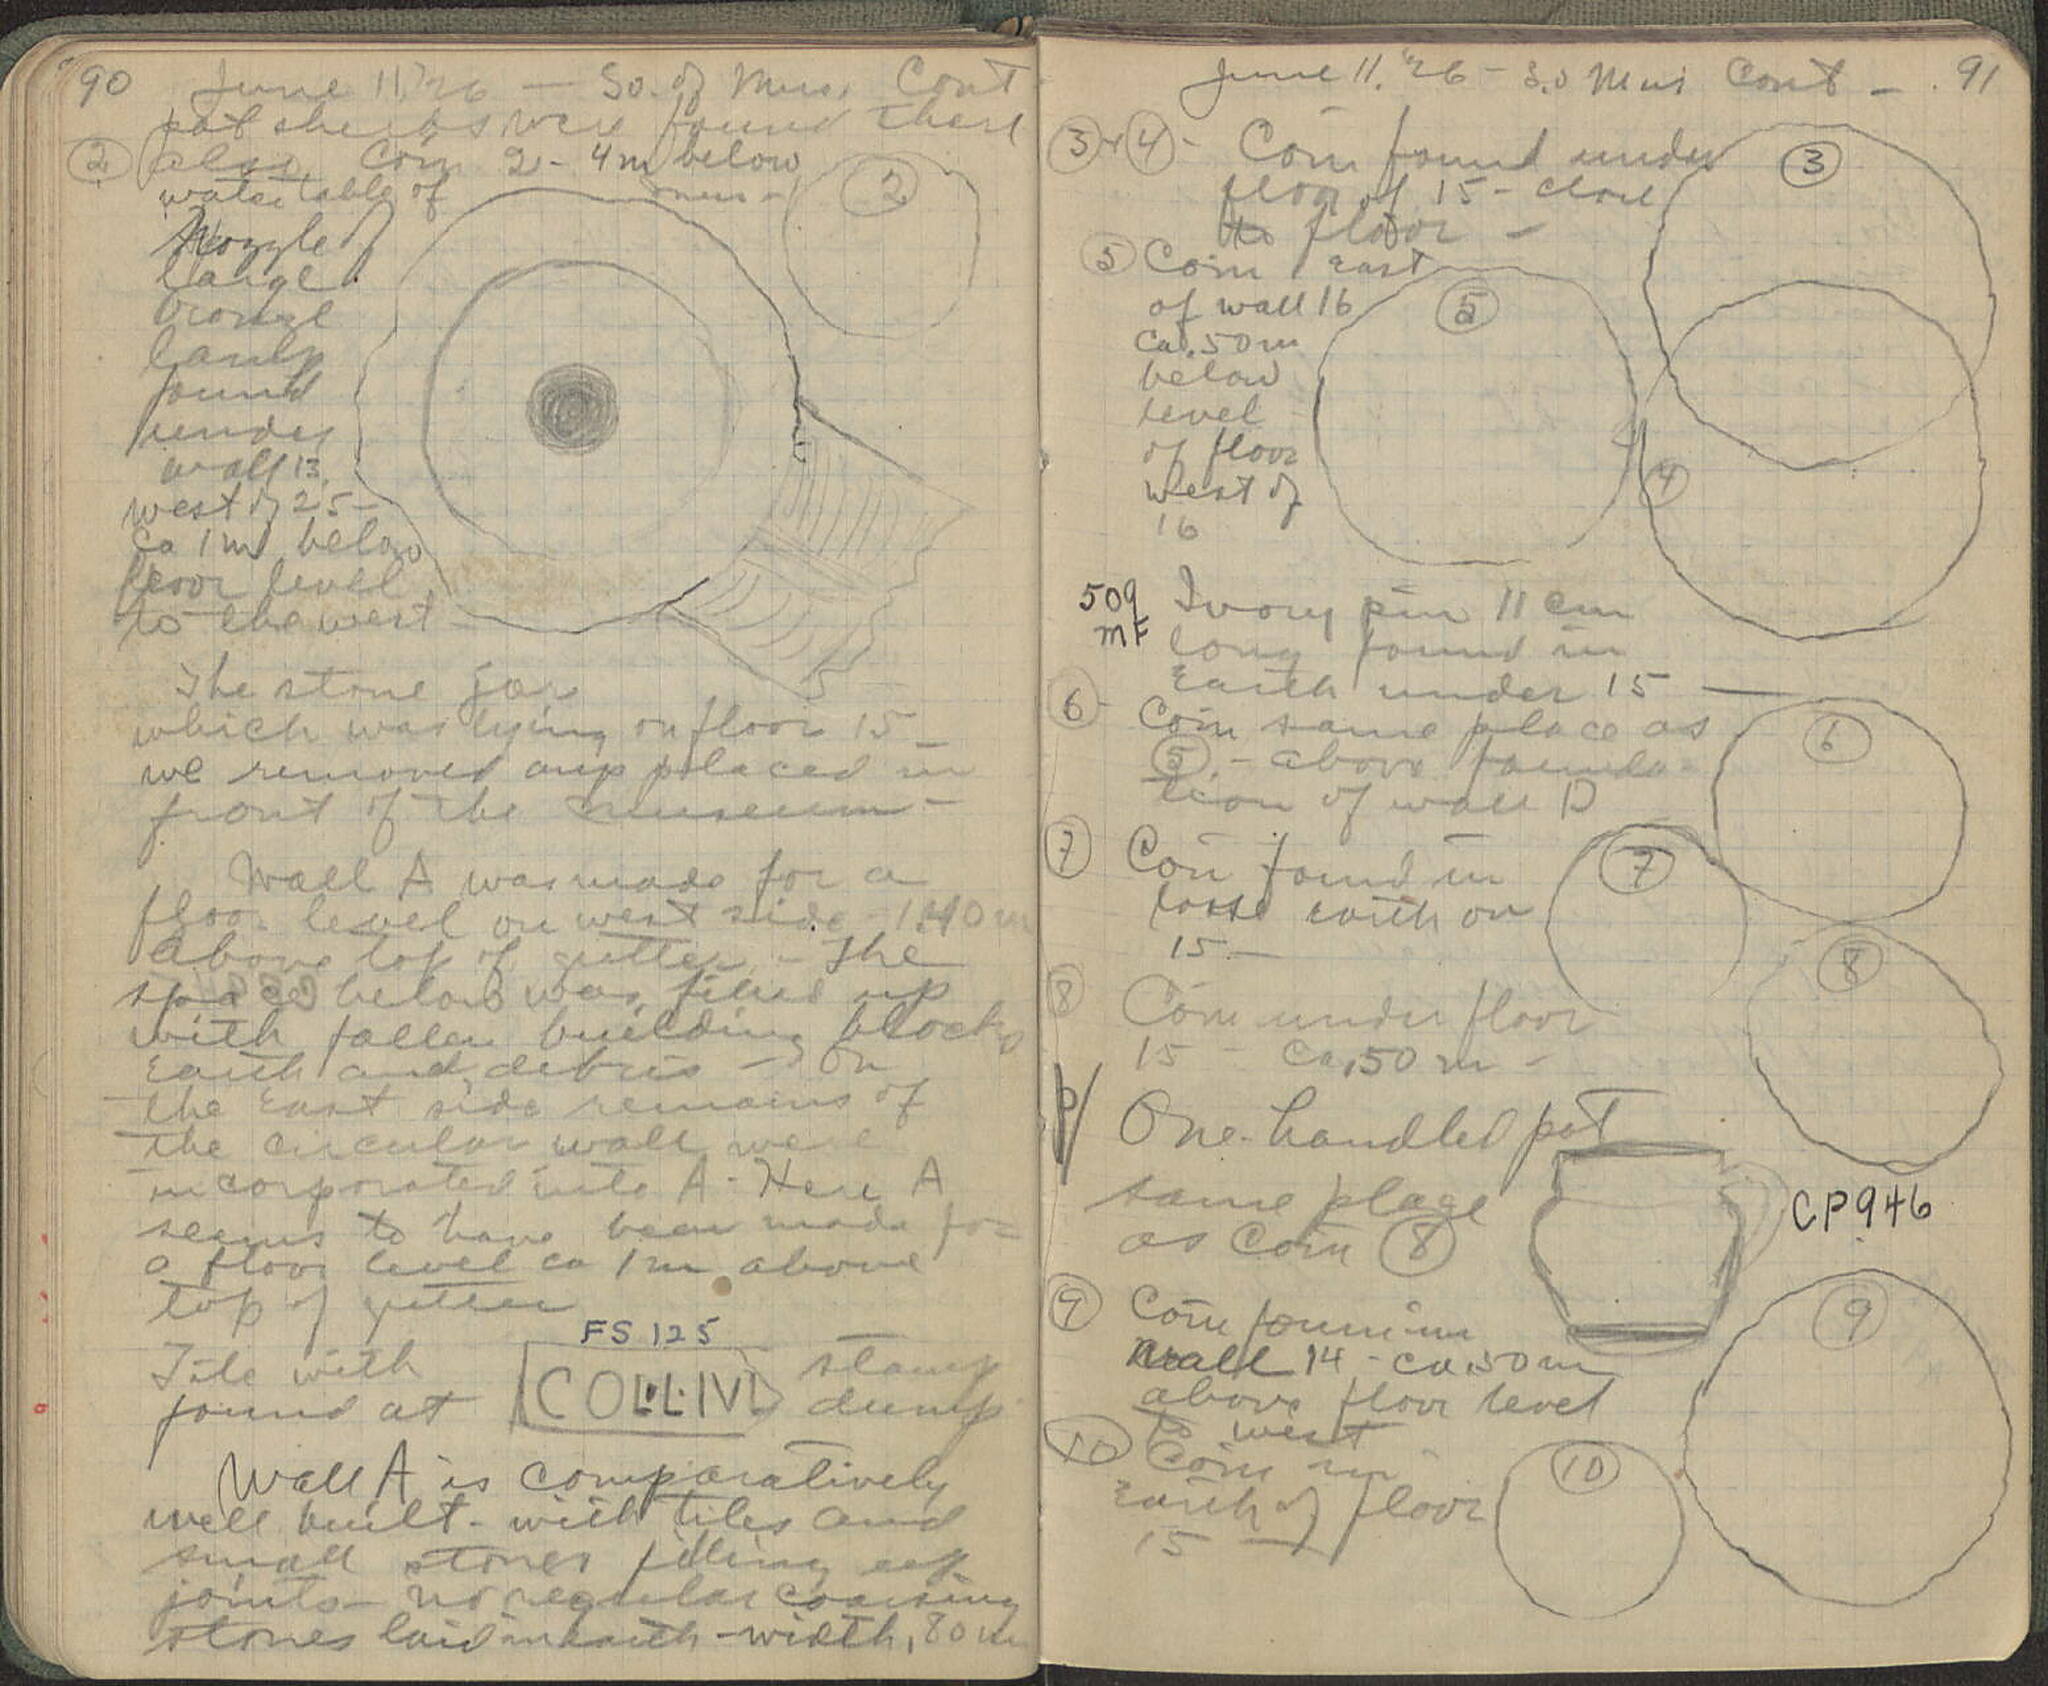 90 June 11, '26 — So. of Mus. Cont
pot sherds were found there
② also. Coin 2 - 4m below
water table of mus -
Nozzle of
large
bronze
lamp
found
under
wall 13,
west of 25 -
ca 1m below
floor level
to the west -
②
The stone jar
which was lying on floor 15 -
we removed and placed in
front of the museum -
Wall A was made for a
floor level on west side - 1.40m
above top of gutter - The
space below was filled up
with fallen building blocks
earth and debris - On
the east side remains of
the circular wall were
incorporated into A - Here A
seems to have been made for
a floor level ca 1m above
top of gutter
FS 125
Tile with COL·L·IVL stamp
found at dump
Wall A is comparatively
well built - with tiles and
small stones filling up
joints - no regular coursing
stones laid in earth - width, 80 m
June 11, '26 - S.o Mus Cont - . 91
③ + ④ - Coin found under
floor of 15 - close
to floor -
③
④
⑤ Coin east
of wall 16
ca .50m
below
level
of floor
west of
16
⑤
509
MF
Ivory pin 11 cm
long found in
earth under 15 —
6 - Coin same place as
⑤ - above founda-
tion of wall D
⑥
⑦ Coin found in
loose earth on
15 -
⑦
⑧ Coin under floor
15 - ca .50 m -
⑧
P/ One-handled pot
same place
as Coin ⑧
CP946
⑨ Coin found in
wall 14 - ca .50m
above floor level
to west
⑨
⑩ Coin in
earth of floor
15 —
⑩